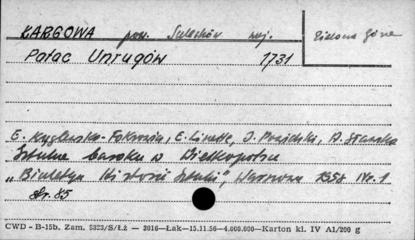 KARGOWA pow. Sulechów woj. Zielona Góra
Pałac Unrugów 1731
E. Kręglewska-Foksowicz, E. Linette, J. Powidzki, A. Sławska
Sztuka baroku w Wielkopolsce
„Biuletyn Historii Sztuki", Warszawa 1958 Nr. 1
str. 85
CWD - B-15b. Zam. 5323/S/Łż — 2016—Łak—15.11.56—4.000.000—Karton kl. IV A1/200 g